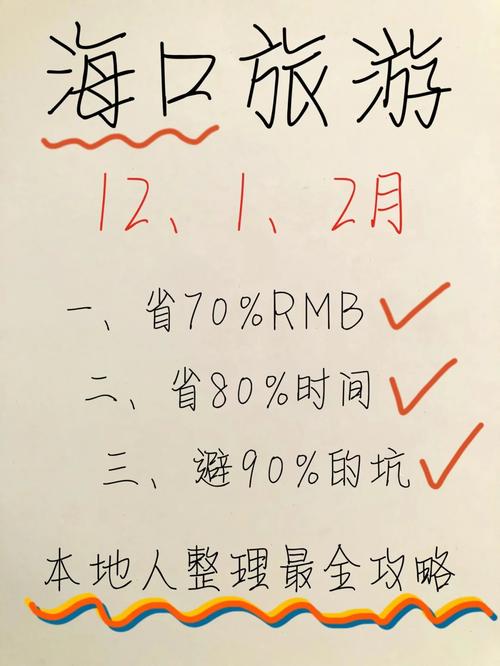 海口旅游
12、1、2月
一、省70%RMB
二、省80%时间
三、避90%的坑
本地人整理最全攻略